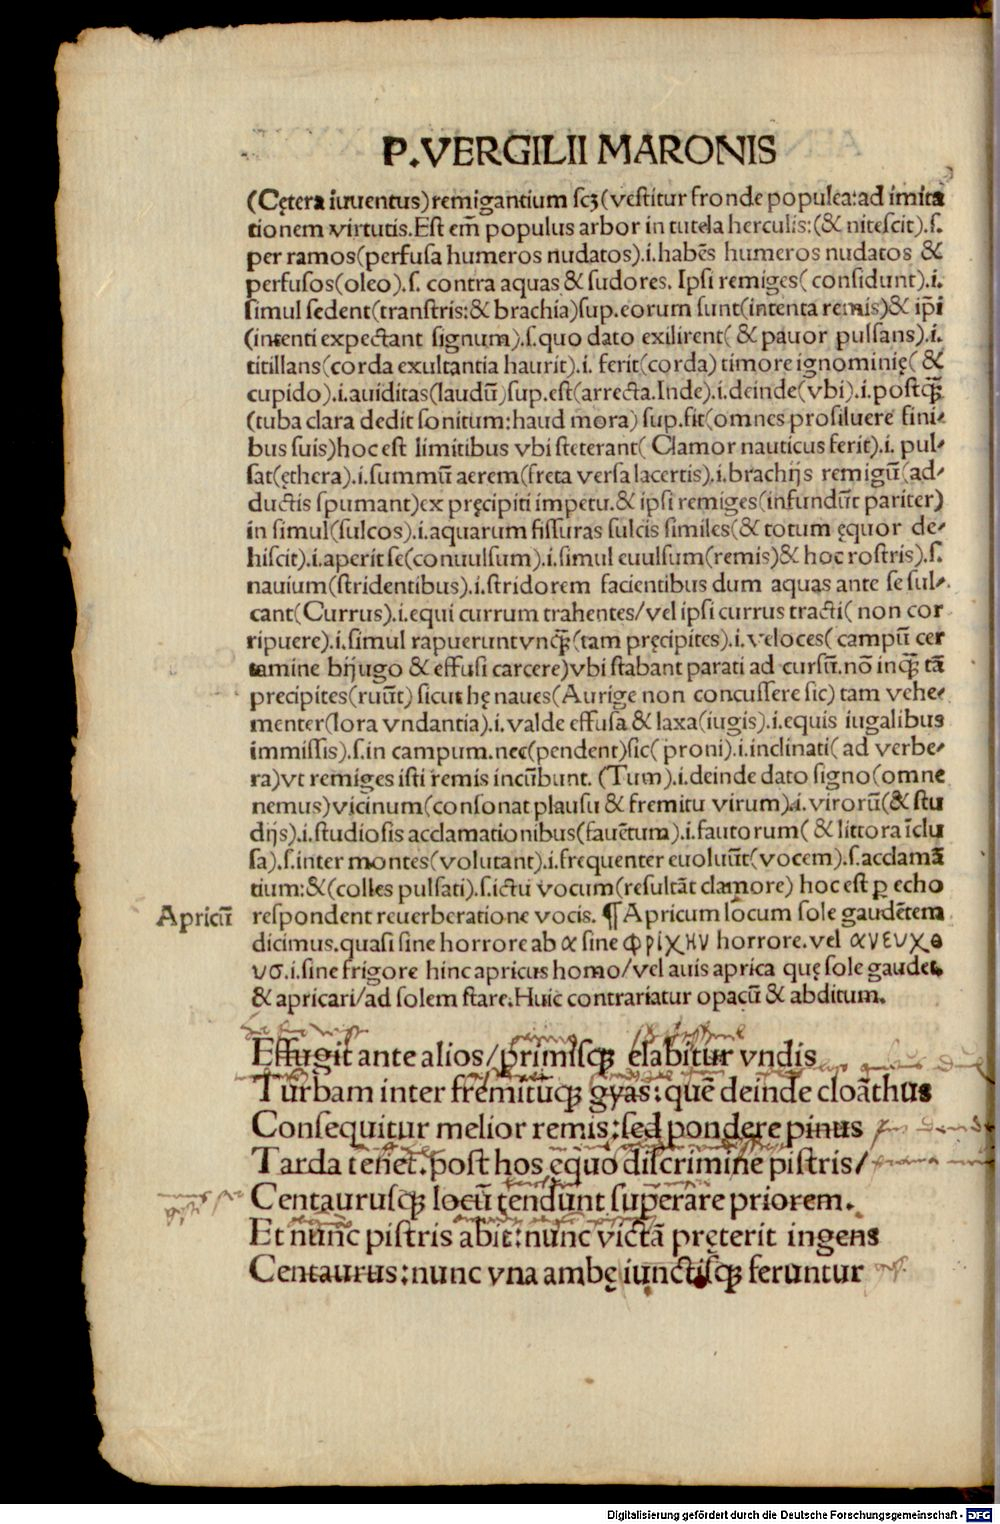 P.VERGILII MARONIS
(Cętera iuuentus) remigantium scꝫ (vestitur fronde populea: ad imita
tionem virtutis. Est em̄ populus arbor in tutela herculis: (& nitescit).s.
per ramos (perfusa humeros nudatos).i. habēs humeros nudatos &
perfusos (oleo).s. contra aquas & sudores. Ipsi remiges (considunt).i.
simul sedent (transtris: & brachia) sup. eorum sunt (intenta remis) & ip̄i
(intenti expectant signum).s. quo dato exilirent (& pauor pulsans).i.
titillans (corda exultantia haurit).i. ferit (corda) timore ignominię (&
cupido).i. auiditas (laudū) sup. est (arrecta. Inde).i. deinde (vbi).i. postqꝫ̄
(tuba clara dedit sonitum: haud mora) sup. fit (omnes prosiluere fini⸗
bus suis) hoc est limitibus vbi steterant (Clamor nauticus ferit).i. pul⸗
sat (ęthera).i. summū aerem (freta versa lacertis).i. brachijs remigū (ad⸗
ductis spumant) ex pręcipiti impetu. & ipsi remiges (infundūt pariter)
in simul (sulcos).i. aquarum fissuras sulcis similes (& totum ęquor de⸗
hiscit).i. aperit se (conuulsum).i. simul euulsum (remis) & hoc rostris).s.
nauium (stridentibus).i. stridorem facientibus dum aquas ante se sul⸗
cant (Currus).i. equi currum trahentes/ vel ipsi currus tracti (non cor
ripuere).i. simul rapuerunt vnqꝫ̄ (tam pręcipites).i. veloces (campū cer
tamine bijugo & effusi carcere) vbi stabant parati ad cursū. nō inqꝫ̄ tā
precipites (ruūt) sicut hę naues (Aurige non concussere sic) tam vehe⸗
menter (lora vndantia).i. valde effusa & laxa (iugis).i. equis iugalibus
immissis).s. in campum. nec (pendent) sic (proni).i. inclinati (ad verbe⸗
ra) vt remiges isti remis incūbunt. (Tum).i. deinde dato signo (omne
nemus) vicinum (consonat plausu & fremitu virum).i. virorū (& stu
dijs).i. studiosis acclamationibus (fauētum).i. fautorum (& littora īclu
sa).s. inter montes (volutant).i. frequenter euoluūt (vocem).s. acclamā
tium: & (colles pulsati).s. ictu vocum (resultāt clamore) hoc est ꝑ echo
Apricū respondent reuerberatione vocis. ¶ Apricum locum sole gaudētem
dicimus. quasi sine horrore ab α sine φρίχην horrore. vel ανευχο
υσ.i. sine frigore hinc apricus homo/ vel auis aprica quę sole gaudet.
& apricari/ ad solem stare. Huic contrariatur opacū & abditum.
Effugit ante alios/ primisqꝫ elabitur vndis
Turbam inter fremitūqꝫ gyas: quē deinde cloāthus
Consequitur melior remis: sed pondere pinus
Tarda tenet. post hos ęquo discrimine pistris/
Centaurusqꝫ locū tendunt superare priorem.
Et nunc pistris abit: nunc victā pręterit ingens
Centaurus: nunc vna ambę iunctisqꝫ feruntur
Digitalisierung gefördert durch die Deutsche Forschungsgemeinschaft - DFG